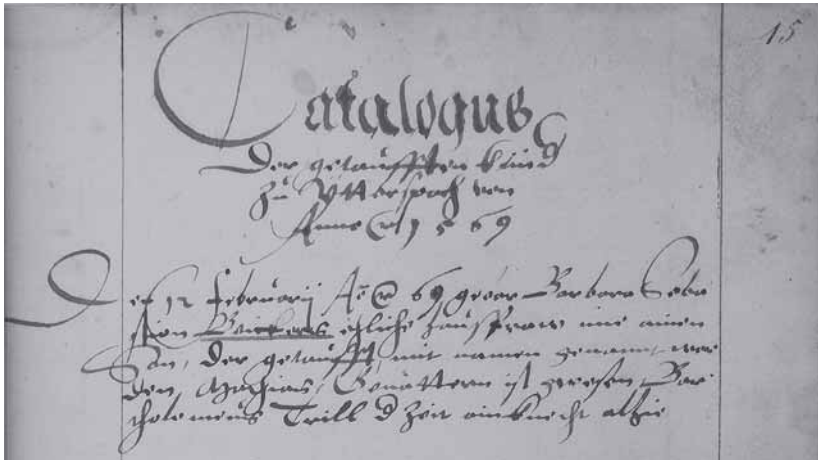 15
Catalogus
Der getaufften kind
zu Vtterspach von
Anno 1569
Den 12 Februarij Aō 69 gebar Barbara Seba
stian ehliche hausfraw ime ainen
Son, der getaufft, mit namen genannt wor
den, Mathias, Gevattern ist gewesen Bar
tholemeus Trill d Zeit ainknecht alhie